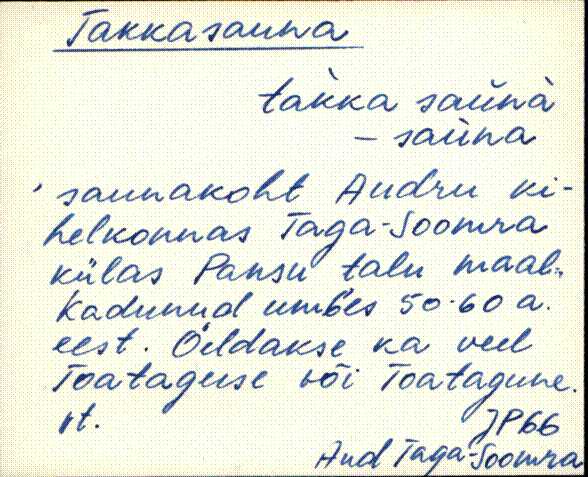 Takkasauna
takka sauna
– sauna
saunakoht Audru ki-
helkonnas Taga-Soomra
külas Pansu talu maal.
Kadunud umbes 50-60 a.
eest. Öeldakse ka veel
Toataguse või Toatagune.
vt.
JP66
Aud Taga-Soomra